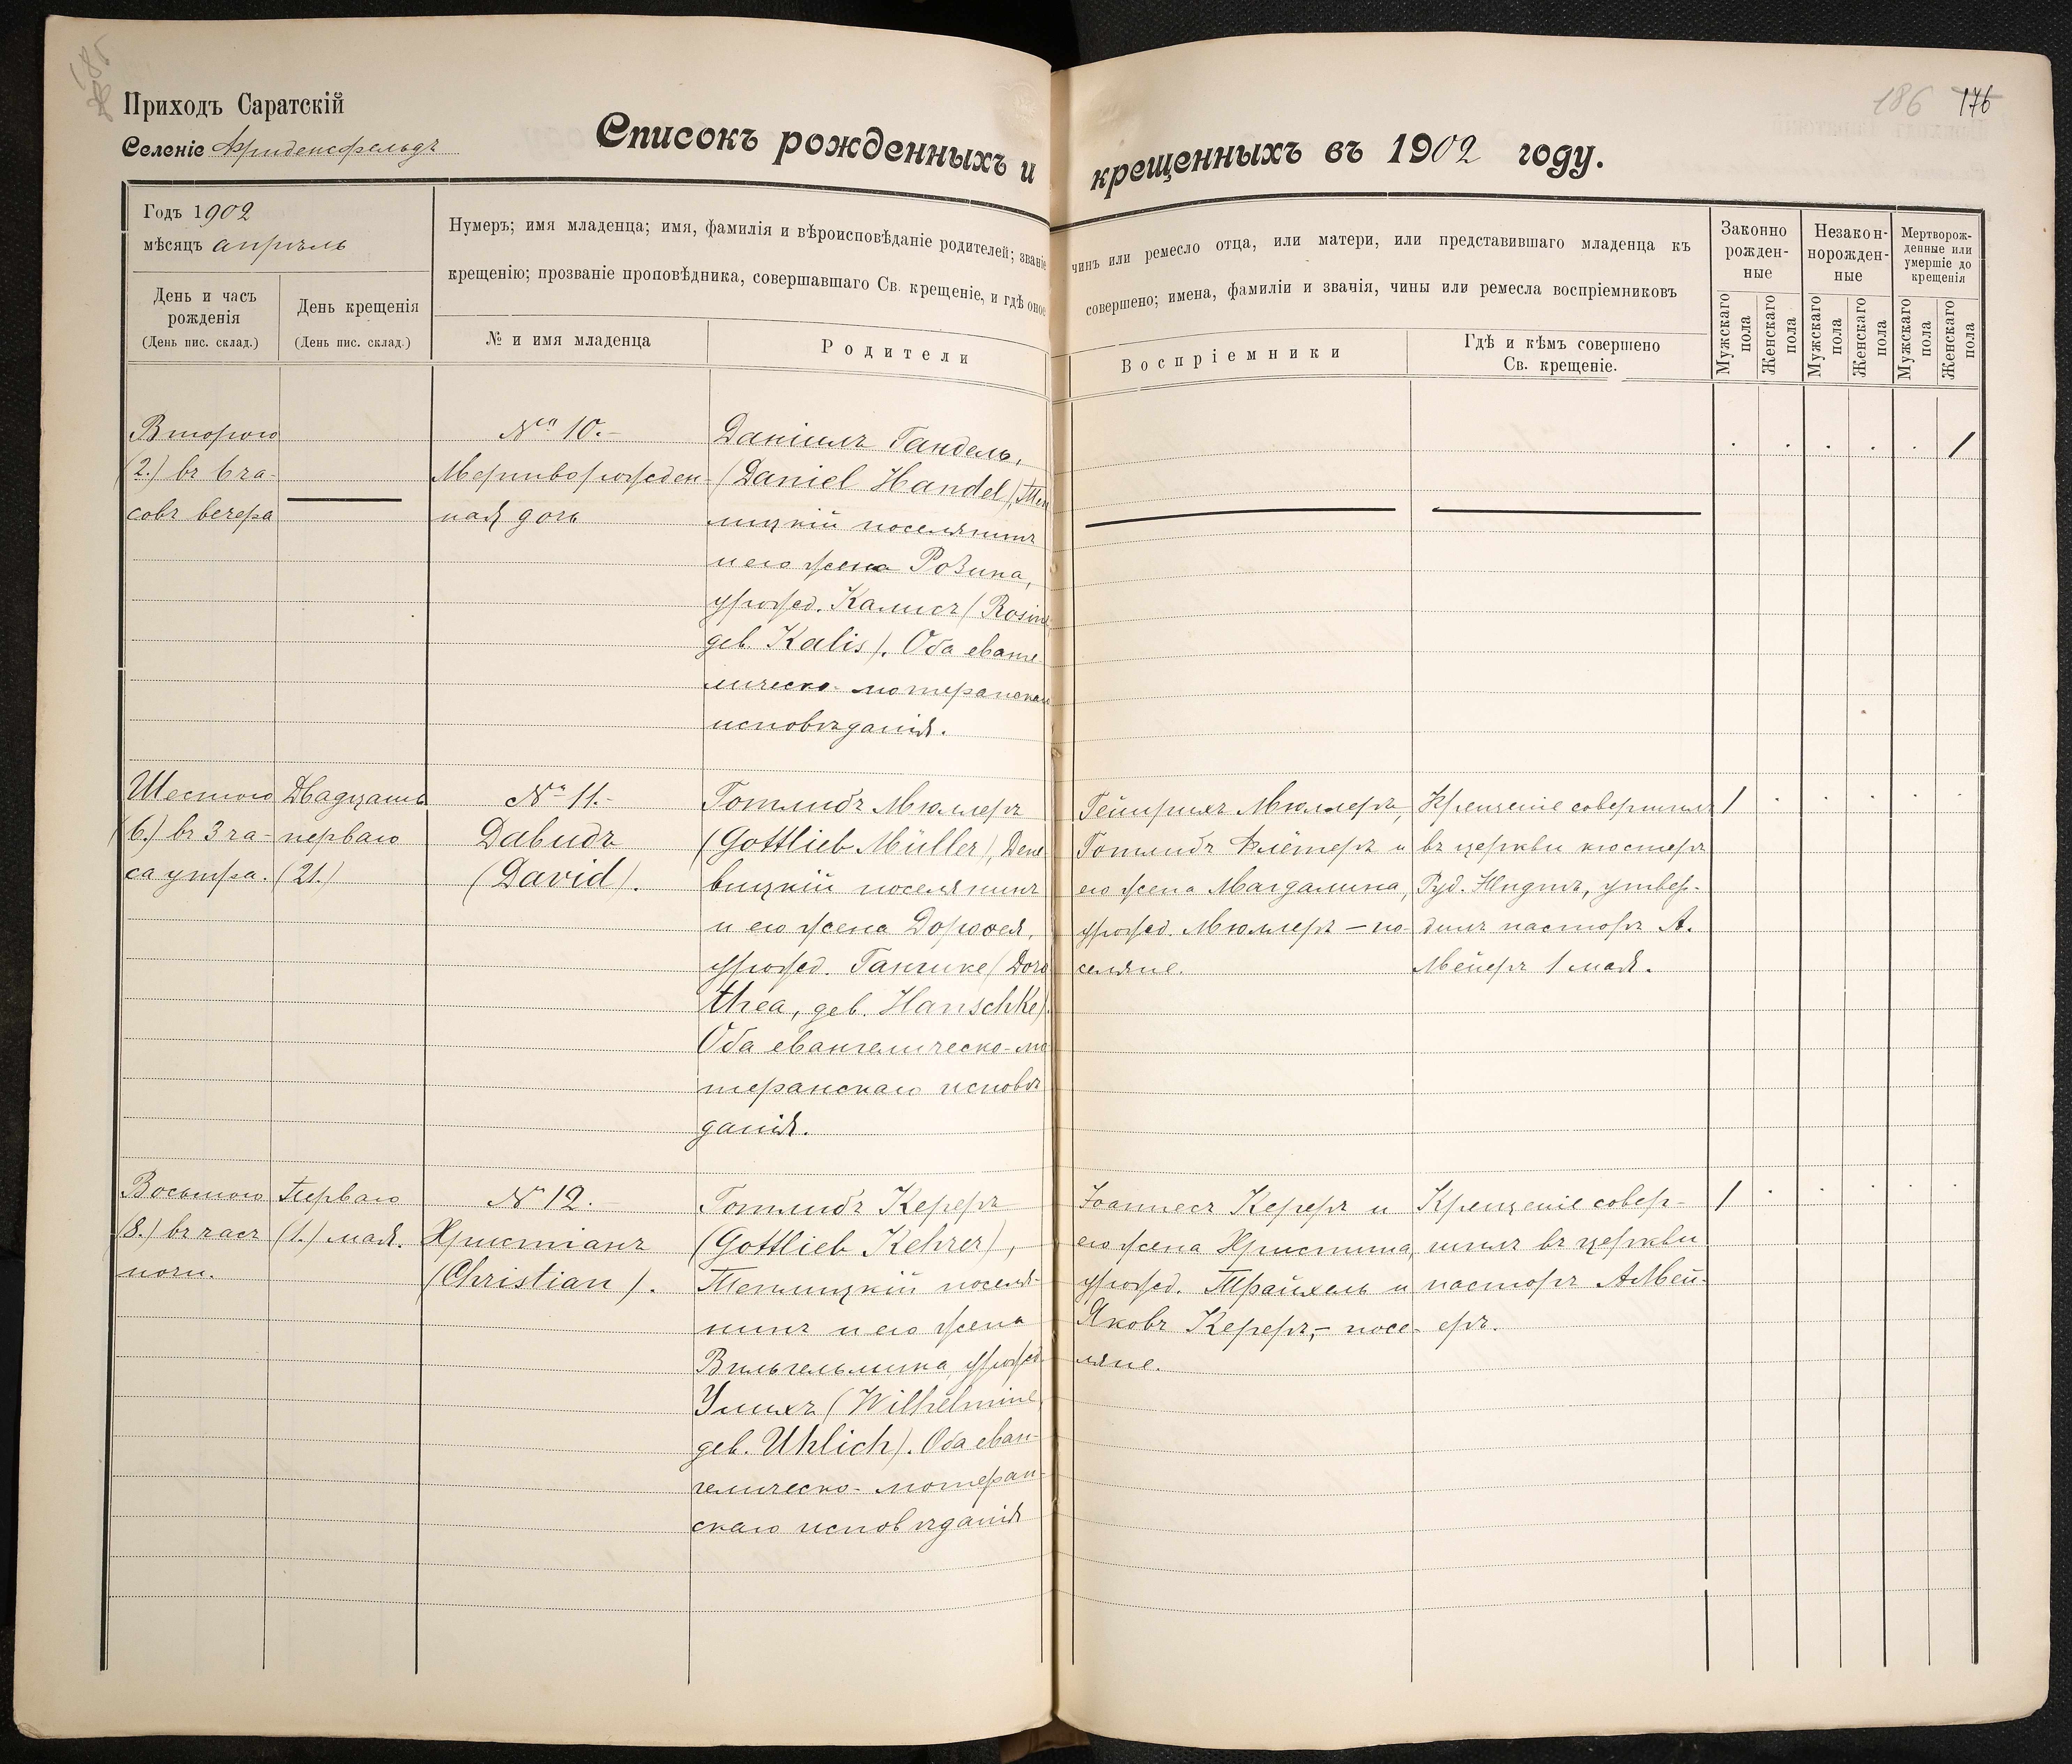 185
Приходъ Саратскій
Селеніе Фриденсфельдъ
Списокъ рожденныхъ и крещенныхъ въ 1902 году.
186 176
Годъ 1902
мѣсяцъ апрѣль
День и часъ рожденія
(День пис. склад.)
День крещенія
(День пис. склад.)
Нумеръ; имя младенца; имя, фамилія и вѣроисповѣданіе родителей; званіе
чинъ или ремесло отца, или матери, или представившаго младенца къ
крещенію; прозваніе проповѣдника, совершавшаго Св. крещеніе, и гдѣ оное
совершено; имена, фамиліи и званія, чины или ремесла воспріемниковъ
№ и имя младенца
Родители
Воспріемники
Гдѣ и кѣмъ совершено
Св. крещеніе.
Законно
рожден-
ные
Незакон-
норожден-
ные
Мертворож-
денные или
умершіе до
крещенія
Мужскаго пола
Женскаго пола
Мужскаго пола
Женскаго пола
Мужскаго пола
Женскаго пола
Второго
(2.) въ 6 ча-
совъ вечера
№ 10.-
Мертворожден-
ная дочь
Даніилъ Гандель,
(Daniel Handel), Теп
лицкій поселянинъ
и его жена Розина,
урожд. Калисъ (Rosine
geb. Kalis). Оба еванге-
лическо-лютеранскаго
исповѣданія.
1
Шестого
(6.) въ 3 ча-
са утра.
Двадцать
перваго
(21.)
№ 11.-
Давидъ
(David).
Готлибъ Мюллеръ
(Gottlieb Müller), Дене-
вицкій поселянинъ
и его жена Дороѳея,
урожд. Ганшке (Doro
thea, geb. Hanschke).
Оба евангелическо-лю
теранскаго исповѣ
данія.
Гейнрихъ Мюллеръ,
Готлибъ Флётеръ и
его жена Магдалина,
урожд. Мюллеръ - по-
селяне.
Крещеніе совершилъ
въ церкви кюстеръ
Руд. Нидтъ, утвер-
дилъ пасторъ А.
Мейеръ 1 мая.
1
Восьмого
(8.) въ часъ
ночи.
Перваго
(1.) мая.
№ 12.
Христіанъ
(Christian).
Готлибъ Кереръ
(Gottlieb Kehrer),
Теплицкій поселя-
нинъ и его жена
Вильгельмина, урожд.
Улихъ (Wilhelmine,
geb. Uhlich). Оба еван-
гелическо-лютеран-
скаго исповѣданія
Іоаннесъ Кереръ и
его жена Христина,
урожд. Трайхель и
Яковъ Кереръ, - посе-
ляне.
Крещеніе совер-
шилъ въ церкви
пасторъ А Мей-
еръ.
1